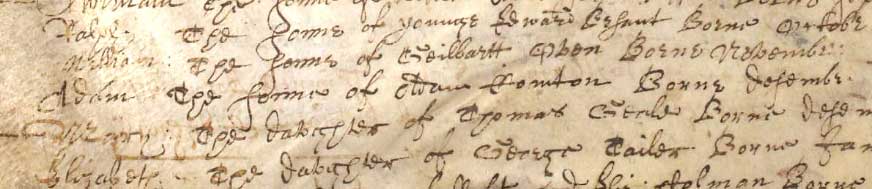 The sonne of
Ralph: The sonne of younge Edward Bessant Borne October
William: The sonne of Geilbartt Owen Borne November:
Adam The sonne of Adam Rowton Borne desember.
Mary: The dawghter of Thomas Seale Borne desem
Elizabeth: The dawghter of George Tailer Borne Jan
Holman Borne